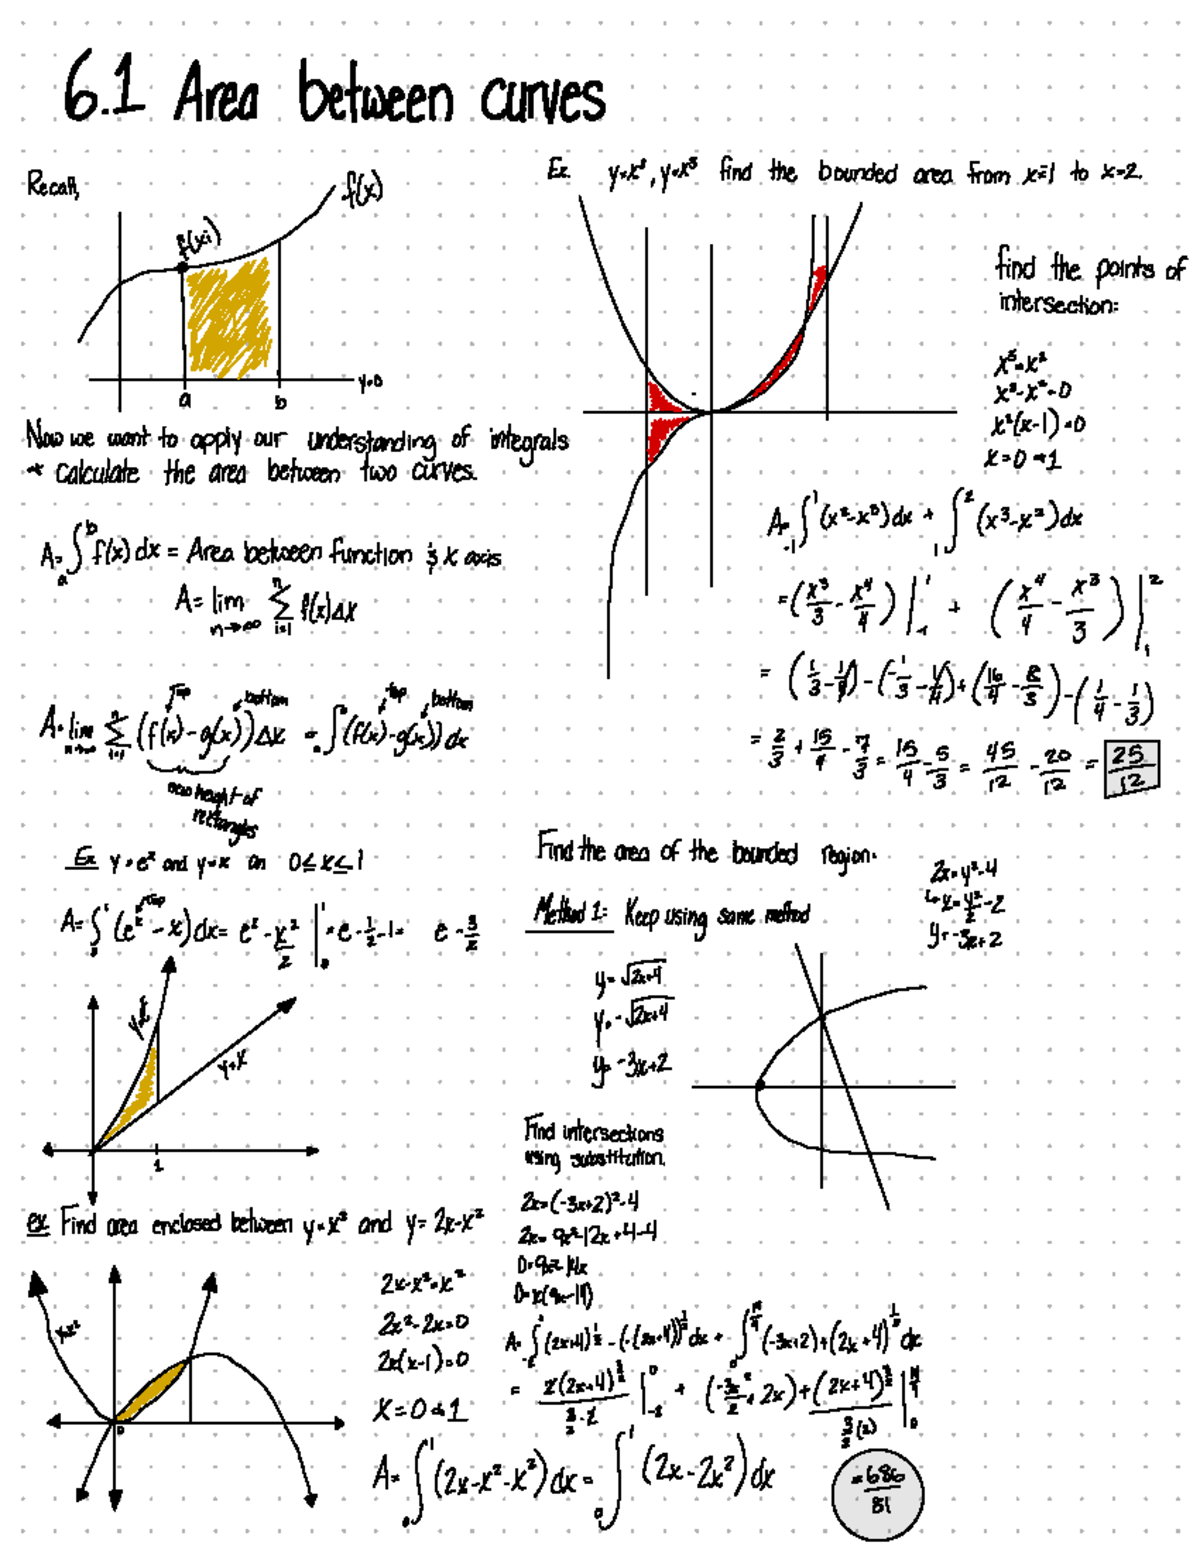 6.1 Area between curves
Recall,
f(x)
f(xi)
y=0
a b
Now we want to apply our understanding of integrals
→ calculate the area between two curves.
A=∫ₐᵇ f(x) dx = Area between function & x axis
A= lim n→∞ Σ i=1 n f(x)Δx
top bottom top bottom
A= lim n→∞ Σ i=1 n (f(x)-g(x))Δx = ∫ₐᵇ (f(x)-g(x)) dx
new height of
rectangles
Ex y=eˣ and y=x on 0≤x≤1
top
A=∫₀¹ (eˣ - x) dx = eˣ - x²/2 |₀¹ = e-1/2-1= e-3/2
y=eˣ
y=x
1
ex: Find area enclosed between y=x² and y= 2x-x²
y=x²
0
2x-x²=x²
2x²-2x=0
2x(x-1)=0
X=0 & 1
A=∫₀¹ (2x-x²-x²) dx = ∫₀¹ (2x-2x²) dx
Ex. y=x², y=x³ find the bounded area from x=-1 to x=2.
find the points of
intersection:
x³=x²
x³-x²=0
x²(x-1)=0
x=0 & 1
A=∫₋₁¹ (x²-x³) dx + ∫₁² (x³-x²) dx
=(x³/3 - x⁴/4)|₋₁¹ + (x⁴/4 - x³/3)|₁²
= (1/3-1/4)-(-1/3-1/4)+(16/4-8/3)-(1/4-1/3)
= 2/3 + 15/4 - 7/3 = 15/4 - 5/3 = 45/12 - 20/12 = 25/12
Find the area of the bounded region.
2x=y²-4
↳x=y²/2-2
y=-3x+2
Method 1: Keep using same method
y=√2x+4
y=-√2x+4
y= -3x+2
Find intersections
using substitution.
2x=(-3x+2)²-4
2x= 9x²-12x+4-4
0=9x²-14x
0=x(9x-14)
A= ∫₋₂⁰ (2x+4)^1/2 - (-(2x+4))^1/2 dx + ∫₀^14/9 (-3x+2)+(2x+4)^1/2 dx
= 2(2x+4)^3/2 / 3/2·2 |₋₂⁰ + (-3x²/2 + 2x)+(2x+4)^3/2 / 3/2(2) |₀^14/9
=686/81